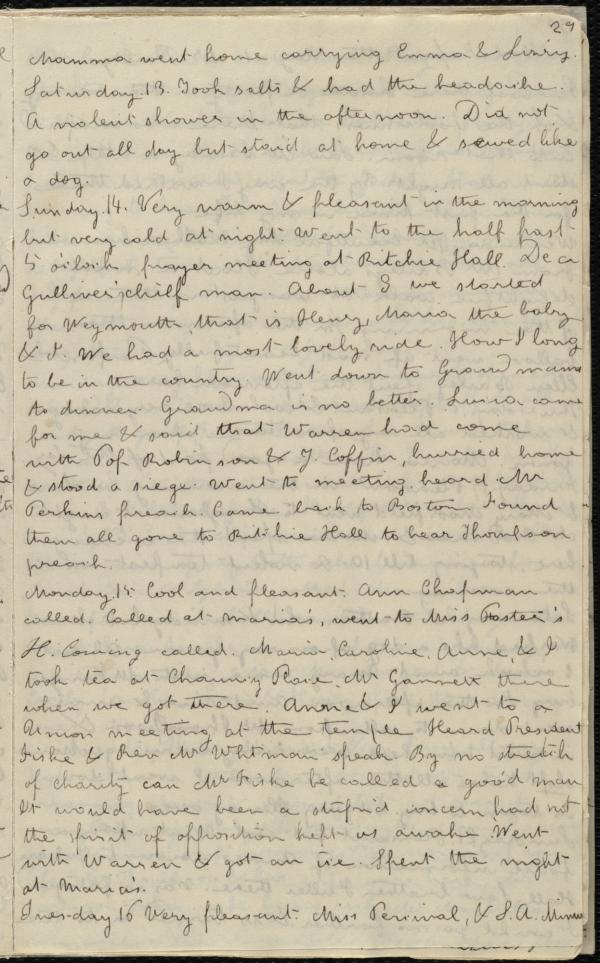 29
Mamma went home carrying Emma & Lizzy.
Saturday 13. Took salts & had the headache.
A violent shower in the afternoon. Did not
go out all day but staid at home & sewed like
a dog.
Sunday 14. Very warm & pleasant in the morning
but very cold at night. Went to the half past
5 o'clock prayer meeting at Ritchie Hall. Dea
Gulliver chief man. About 8 we started
for Weymouth, that is Henry, Maria the baby
& I. We had a most lovely ride. How I long
to be in the country. Went down to Grandmama
to dinner. Grandma is no better. Lucia came
for me & said that Warren had come
with Pof Robinson & J. Coffin, hurried home
& stood a siege. Went to meeting, heard Mr
Perkins preach. Came back to Boston. Found
them all gone to Ritchie Hall to hear Thompson
preach.
Monday 15 Cool and pleasant. Ann Chapman
called. Called at Maria's, went to Miss Foster's
H. called. Maria, Caroline, Anne, & I
took tea at Chauncy Place. Mr Gannett there
when we got there. Anne & I went to a
Union meeting at the temple. Heard President
Fiske & Rev Mr Whitman speak. By no stretch
of charity can Mr Fiske be called a good man
It would have been a stupid concern had not
the spirit of opposition kept us awake. Went
with Warren & got an ice. Spent the night
at Maria's.
Tuesday 16 Very pleasant. Miss Perival, & S. A.